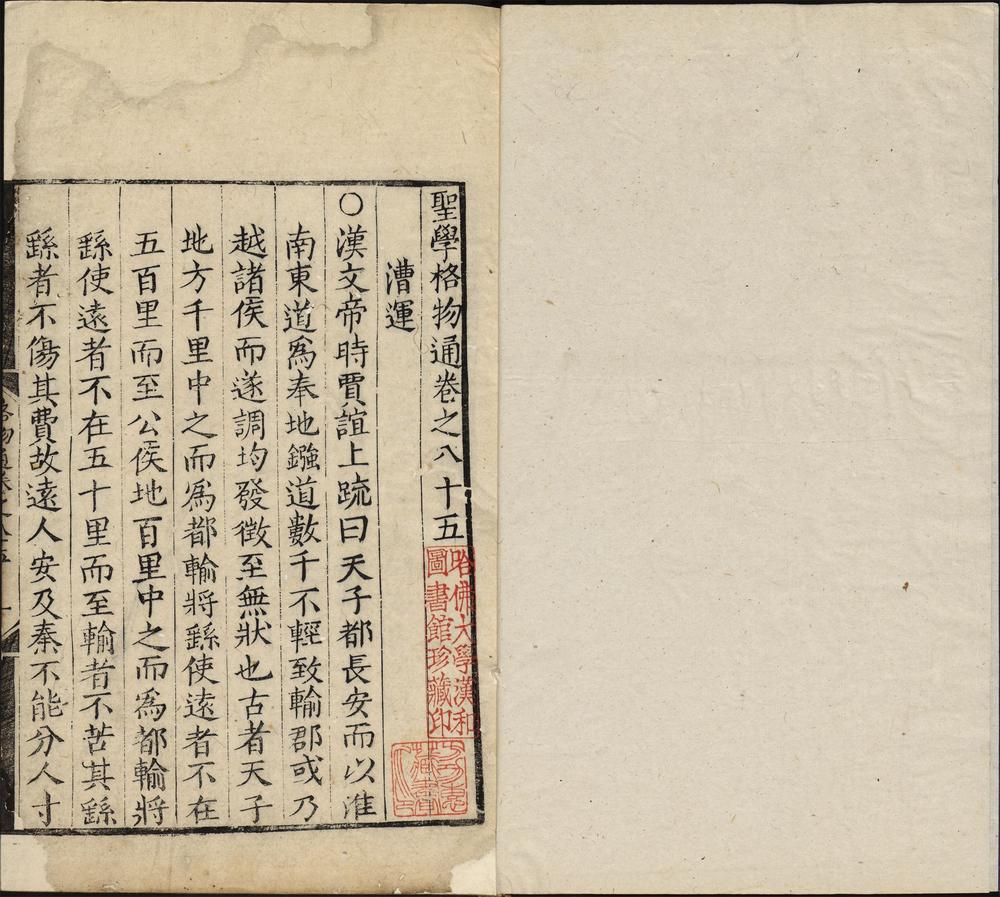 聖學格物通卷之八十五
漕運
○漢文帝時賈誼上䟽曰天子都長安而以淮
南東道爲奉地鏹道數千不輕致輸郡或乃
越諸侯而遂調均發徵至無狀也古者天子
地方千里中之而爲都輸將繇使遠者不在
五百里而至公侯地百里中之而爲都輸將
繇使遠者不在五十里而至輸者不苦其繇
繇者不傷其費故遠人安及秦不能分人寸
格物通卷之八十五
一
哈佛大學漢和
圖書館珍藏印